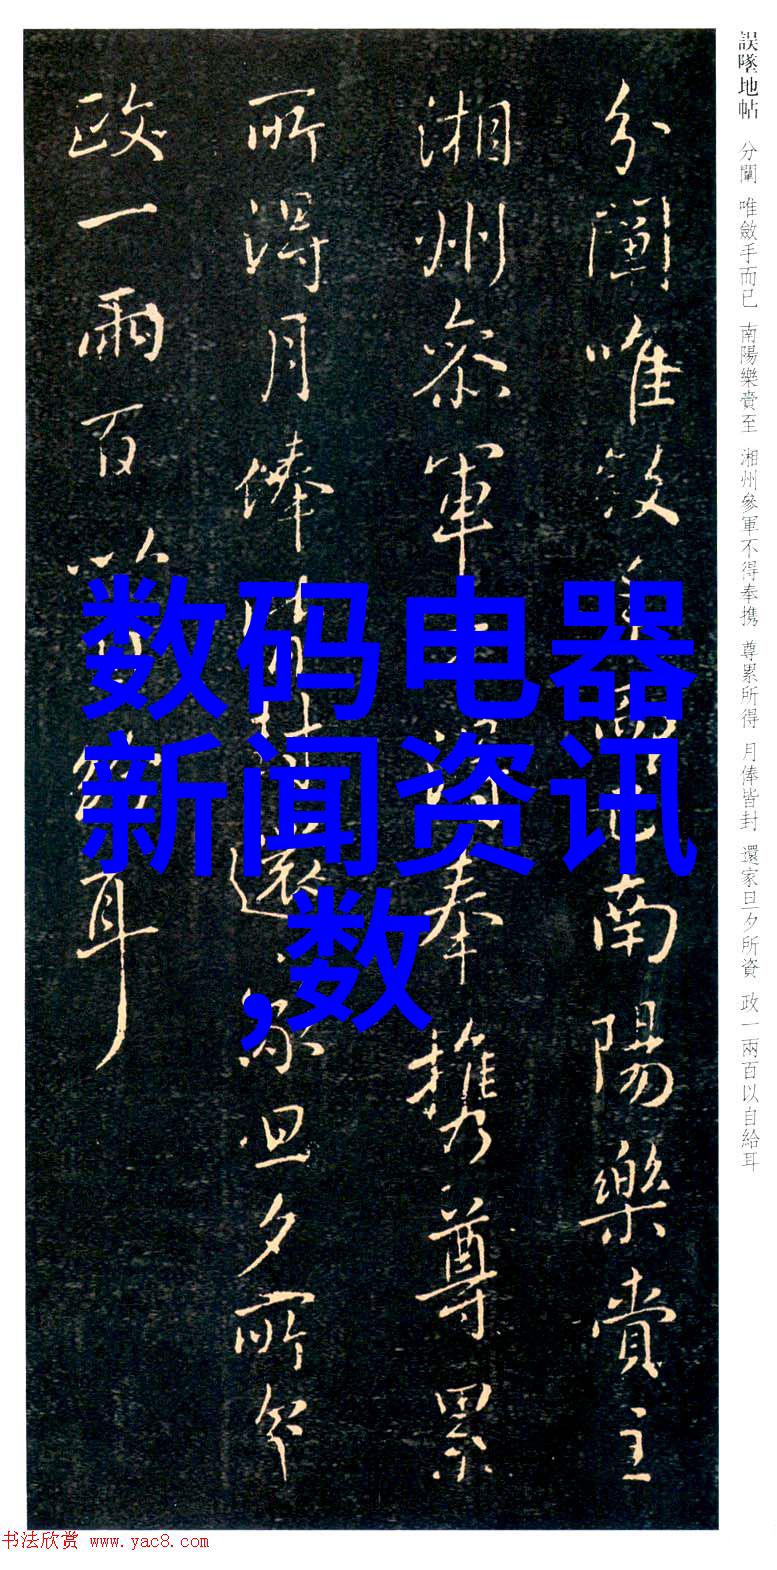 誤墜地帖 分闡 唯斂手而已 南陽樂賞至 湘州參軍不得奉携 尊累所得 月俸皆封 還家旦夕所資 政一兩百以自給耳
分闡唯斂手而已南陽樂賞至
湘州參軍不得奉携尊累
所得月俸皆封還家旦夕所資
政一兩百以自給耳
数码电器
新闻资讯
,数
书法欣赏 www.yac8.com